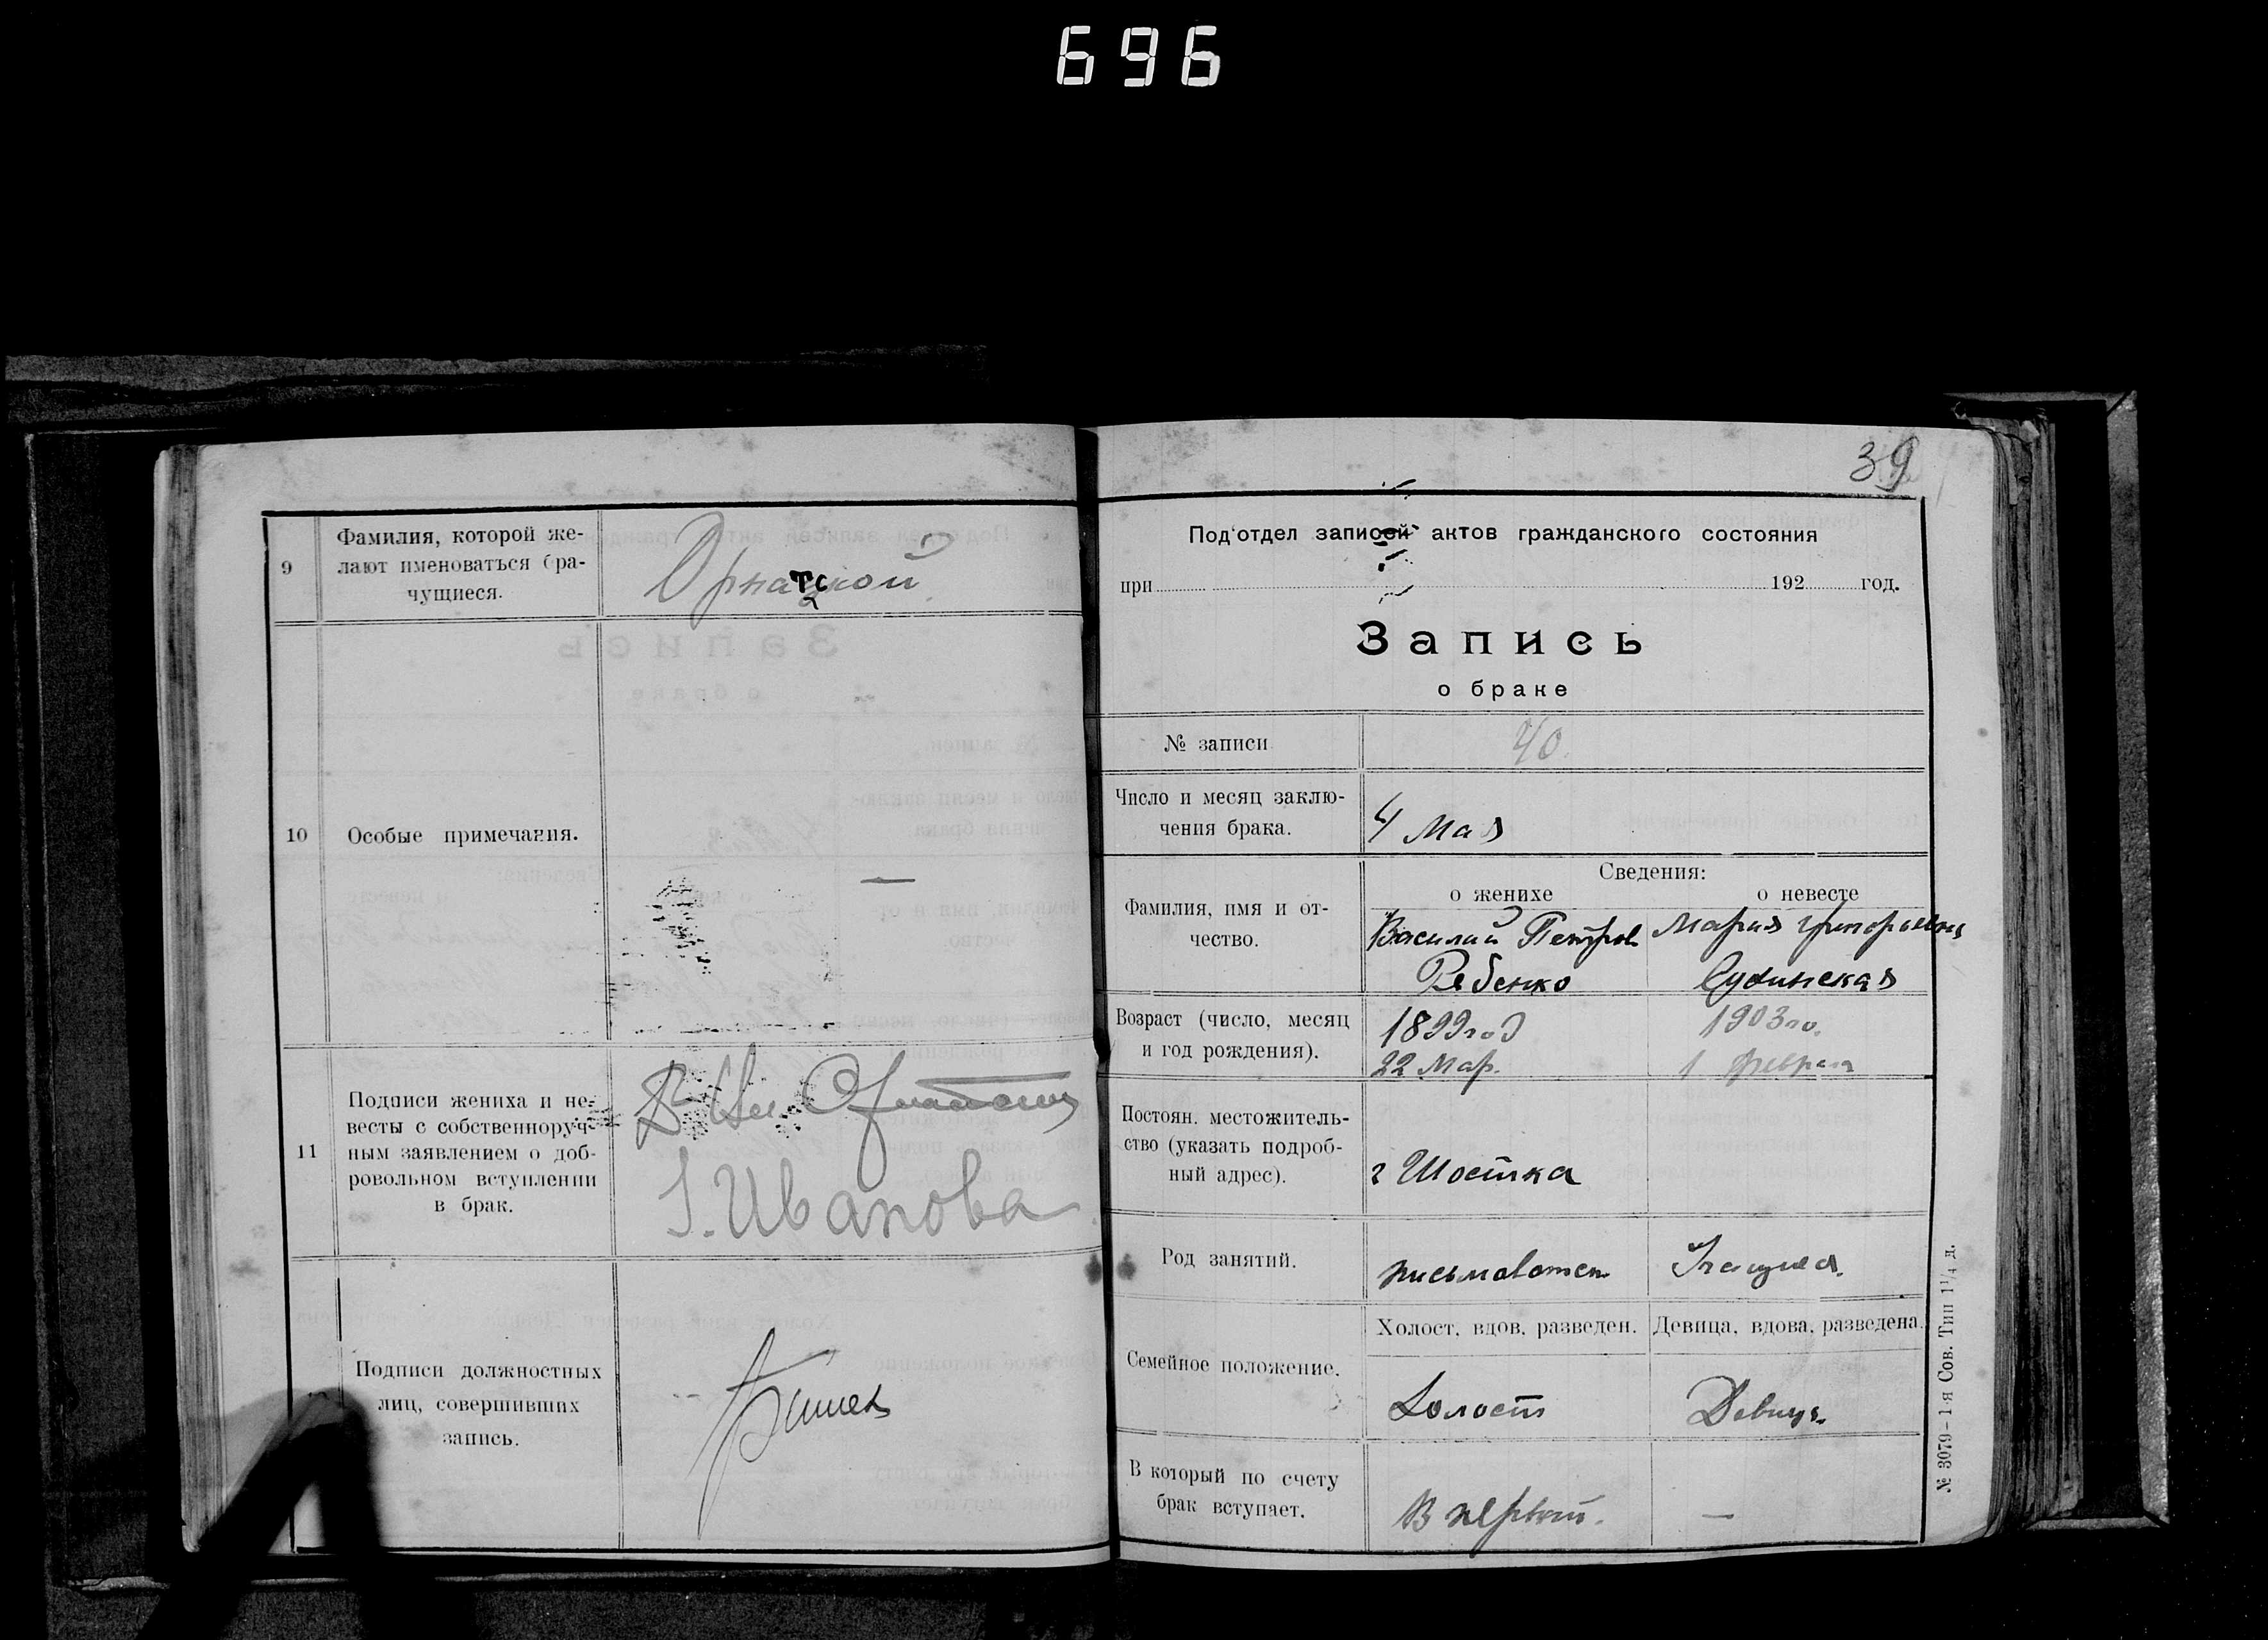 696
9
Фамилия, которой же-
лают именоваться бра-
чущиеся.
Орнатской
10
Особые примечания.
—
11
Подписи жениха и не-
весты с собственноруч-
ным заявлением о доб-
ровольном вступлении
в брак.
І. Иванова
Подписи должностных
лиц, совершивших
запись.
39
Под'отдел записей актов гражданского состояния
при 192 год.
Запись
о браке
№ записи
40.
Число и месяц заклю-
чения брака.
4 Мая
Сведения:
о женихе
о невесте
Фамилия, имя и от-
чество.
Василий Петров
Ребенко
Мария Григорьевна
Возраст (число, месяц
и год рождения).
1899 год
22 Мар.
1903 го.
1 февраля
Постоян. местожитель-
ство (указать подроб-
ный адрес).
г Шостка
Род занятий.
письмоводит
Семейное положение.
Холост, вдов, разведен.
Девица, вдова, разведена.
Холост
Девица
В который по счету
брак вступает.
В первый.
—
№ 3079-1-я Сов. Тип 1¹/₄ д.